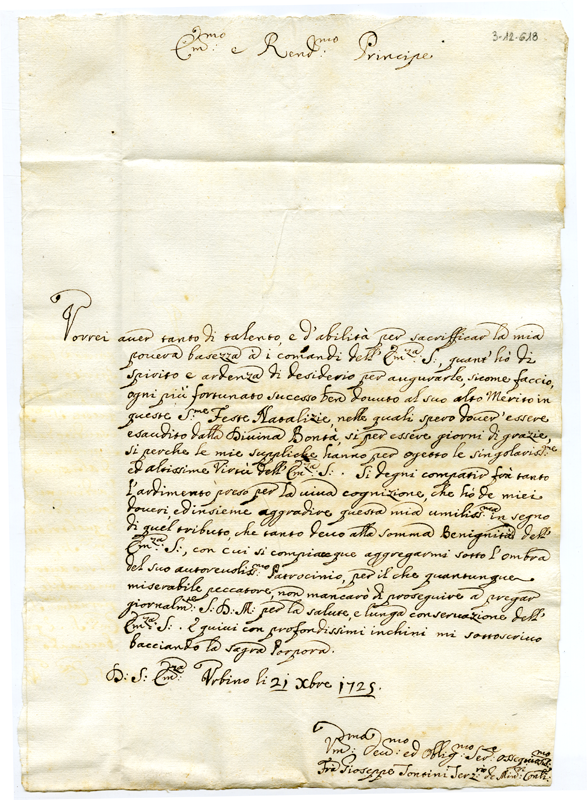 3-12-618
Em:mo e Rend:mo Principe
Vorrei aver tanto di talento, e d'abilità per sacrifficar la mia
povera basezza à i comandi dell' Em:za S:, quant' hò di
spirito e ardenza di desiderio per augurarle, sicome faccio,
ogni più fortunato sucesso ben dovuto al suo alto Merito in
queste S:me Feste Natalizie, nelle quali spero dover' essere
esaudito dalla Divina Bontà, si per essere giorni di grazie,
si perche le mie suppliche hanno per ogetto le singolaris:me
ed altissime Virtù dell' Em:za S: . Si degni compatir frà tanto
l'ardimento preso per la viva cognizione, che hò de miei
doveri ed insieme aggradire questa mia umiliss:ma in segno
di quel tributo, che tanto devo alla somma Benignità dell'
Em:za S:, con cui si compiacque aggregarmi sotto l'ombra
del suo autorevolis:mo Patrocinio, per il che quantunque
miserabile peccatore, non mancarò di proseguire a pregar
giornalm:te S: D: M: per la salute, e lunga conservazione dell'
Em:za S: . E quivi con profondissimi inchini mi sottoscrivo
bacciando la sagra Porpora.
D: S: Em:za Urbino li 21 Xbre 1725.
Um:mo Dev:mo ed Oblig:mo Ser:e ossequios:mo
Frà Gioseppe Tontini Terz:rio de Min: Con:li